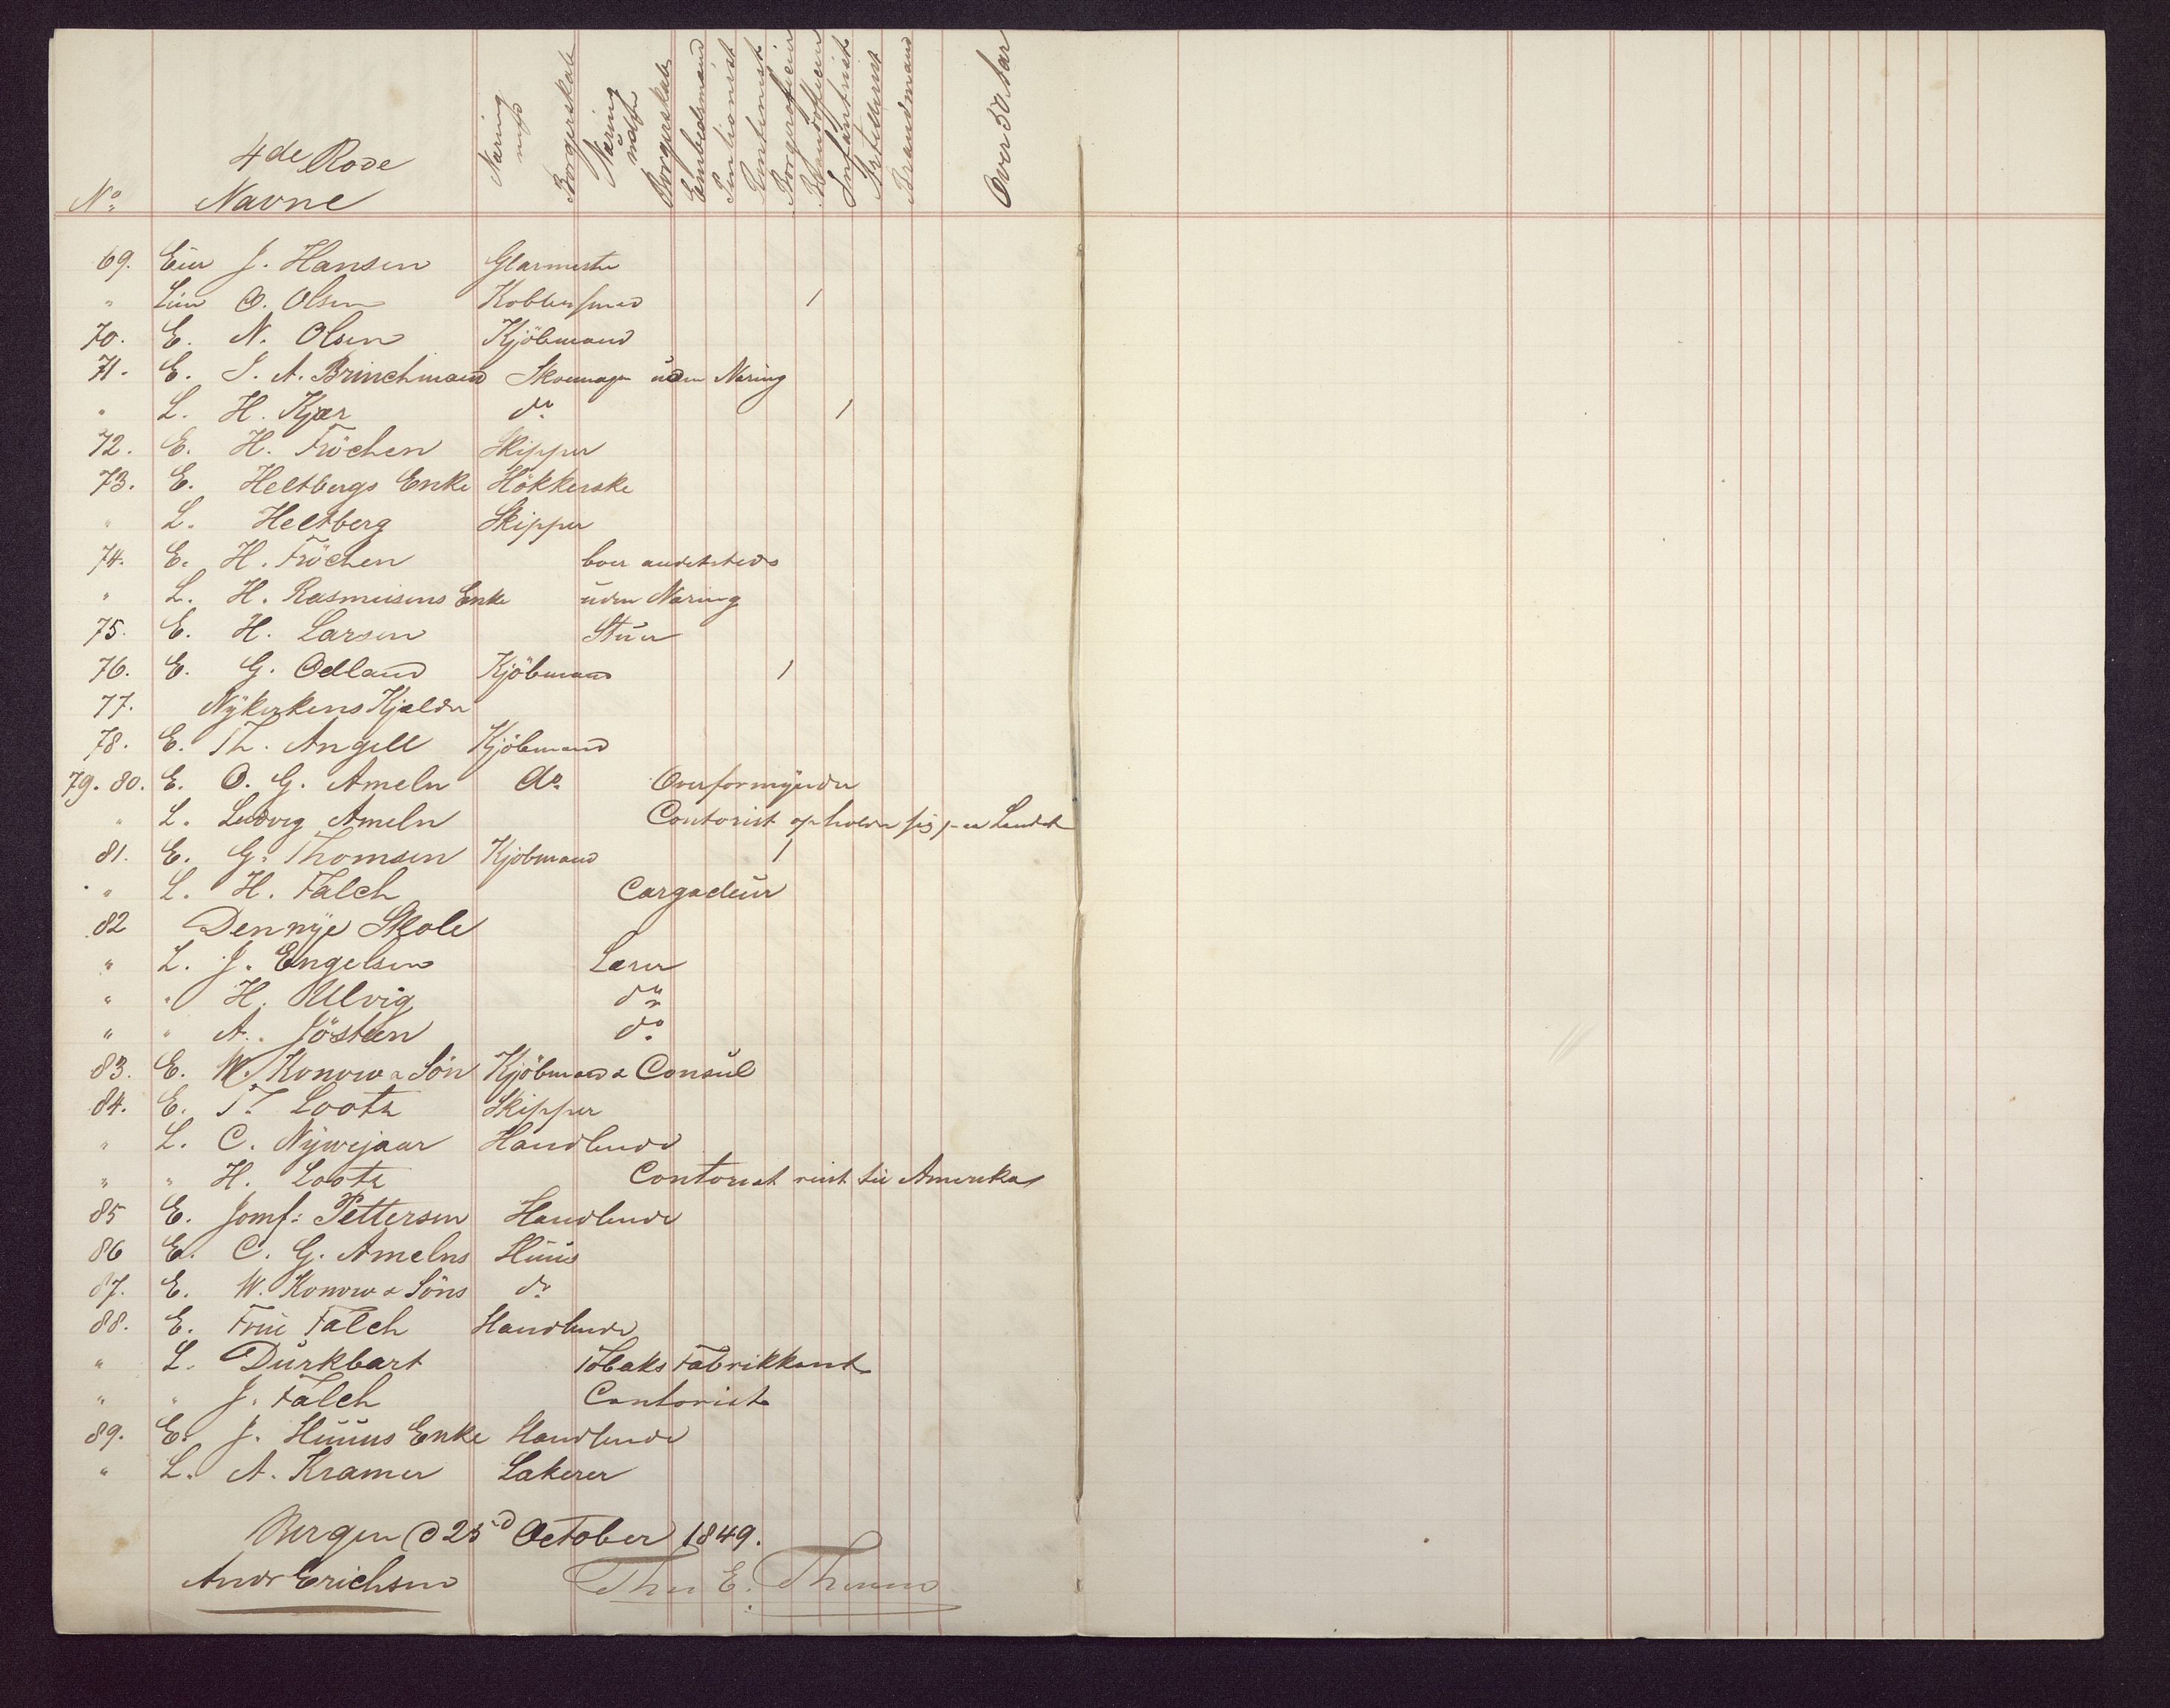 4de Rode
No Navne Næring med Borgerskab Næring uden Borgerskab Embedsmænd Pentionist Borgerofficier Underofficier Infanterist Artillerist Brandmand Over 50 Aar
69. Eier J. Hansen Glarmester
" Leier O. Olsen Kobbersmed 1
70. E. N. Olsen Kjöbmand
71. E. S. A. Brinchmand Skomager uden Næring
" L. H. Kjær do 1
72. E. H. Fröchen Skipper
73. E. Heltbergs Enke Hökkerske
" L. Heltberg Skipper
74. E. H. Fröchen boer andetsteds
" L. H. Rasmusens Enke uden Næring
75. E. H. Larsen Stuer
76. E. G. Odland Kjöbmand 1
77. Nÿkirkens Kjælder
78. E. Th. Angell Kjöbmand
79. 80. E. O. G. Ameln do Overformÿnder
" L. Ludvig Ameln Contorist opholder sig paa Landet
81. E. G. Thomsen Kjöbmand 1
" L. H. Falch Cargadeur
82 Den nÿe Skole
" L. J. Engelsen Lærer
" " H. Ulvig do
" " A. Jösteen do
83. E. W. Konow & Sön Kjöbmand & Consul
84. E. T. Lootz Skipper
" L. C. Nÿwejaar Handlende
" " H. Lootz Contorist reist til Amerika
85 E. Jomf: Pettersen Handlende
86 E. C. G. Amelns Huus
87. E. W. Konow & Söns do
88. E. Frue Falch Handlende
" L. Durkbart Tobaks Fabrikkant
" " J. Falch Contorist
89. E. J. Huuus Enke Handlende
" L. A. Kramer Lakerer
Bergen d 25d October 1849.
Andr Erichsen